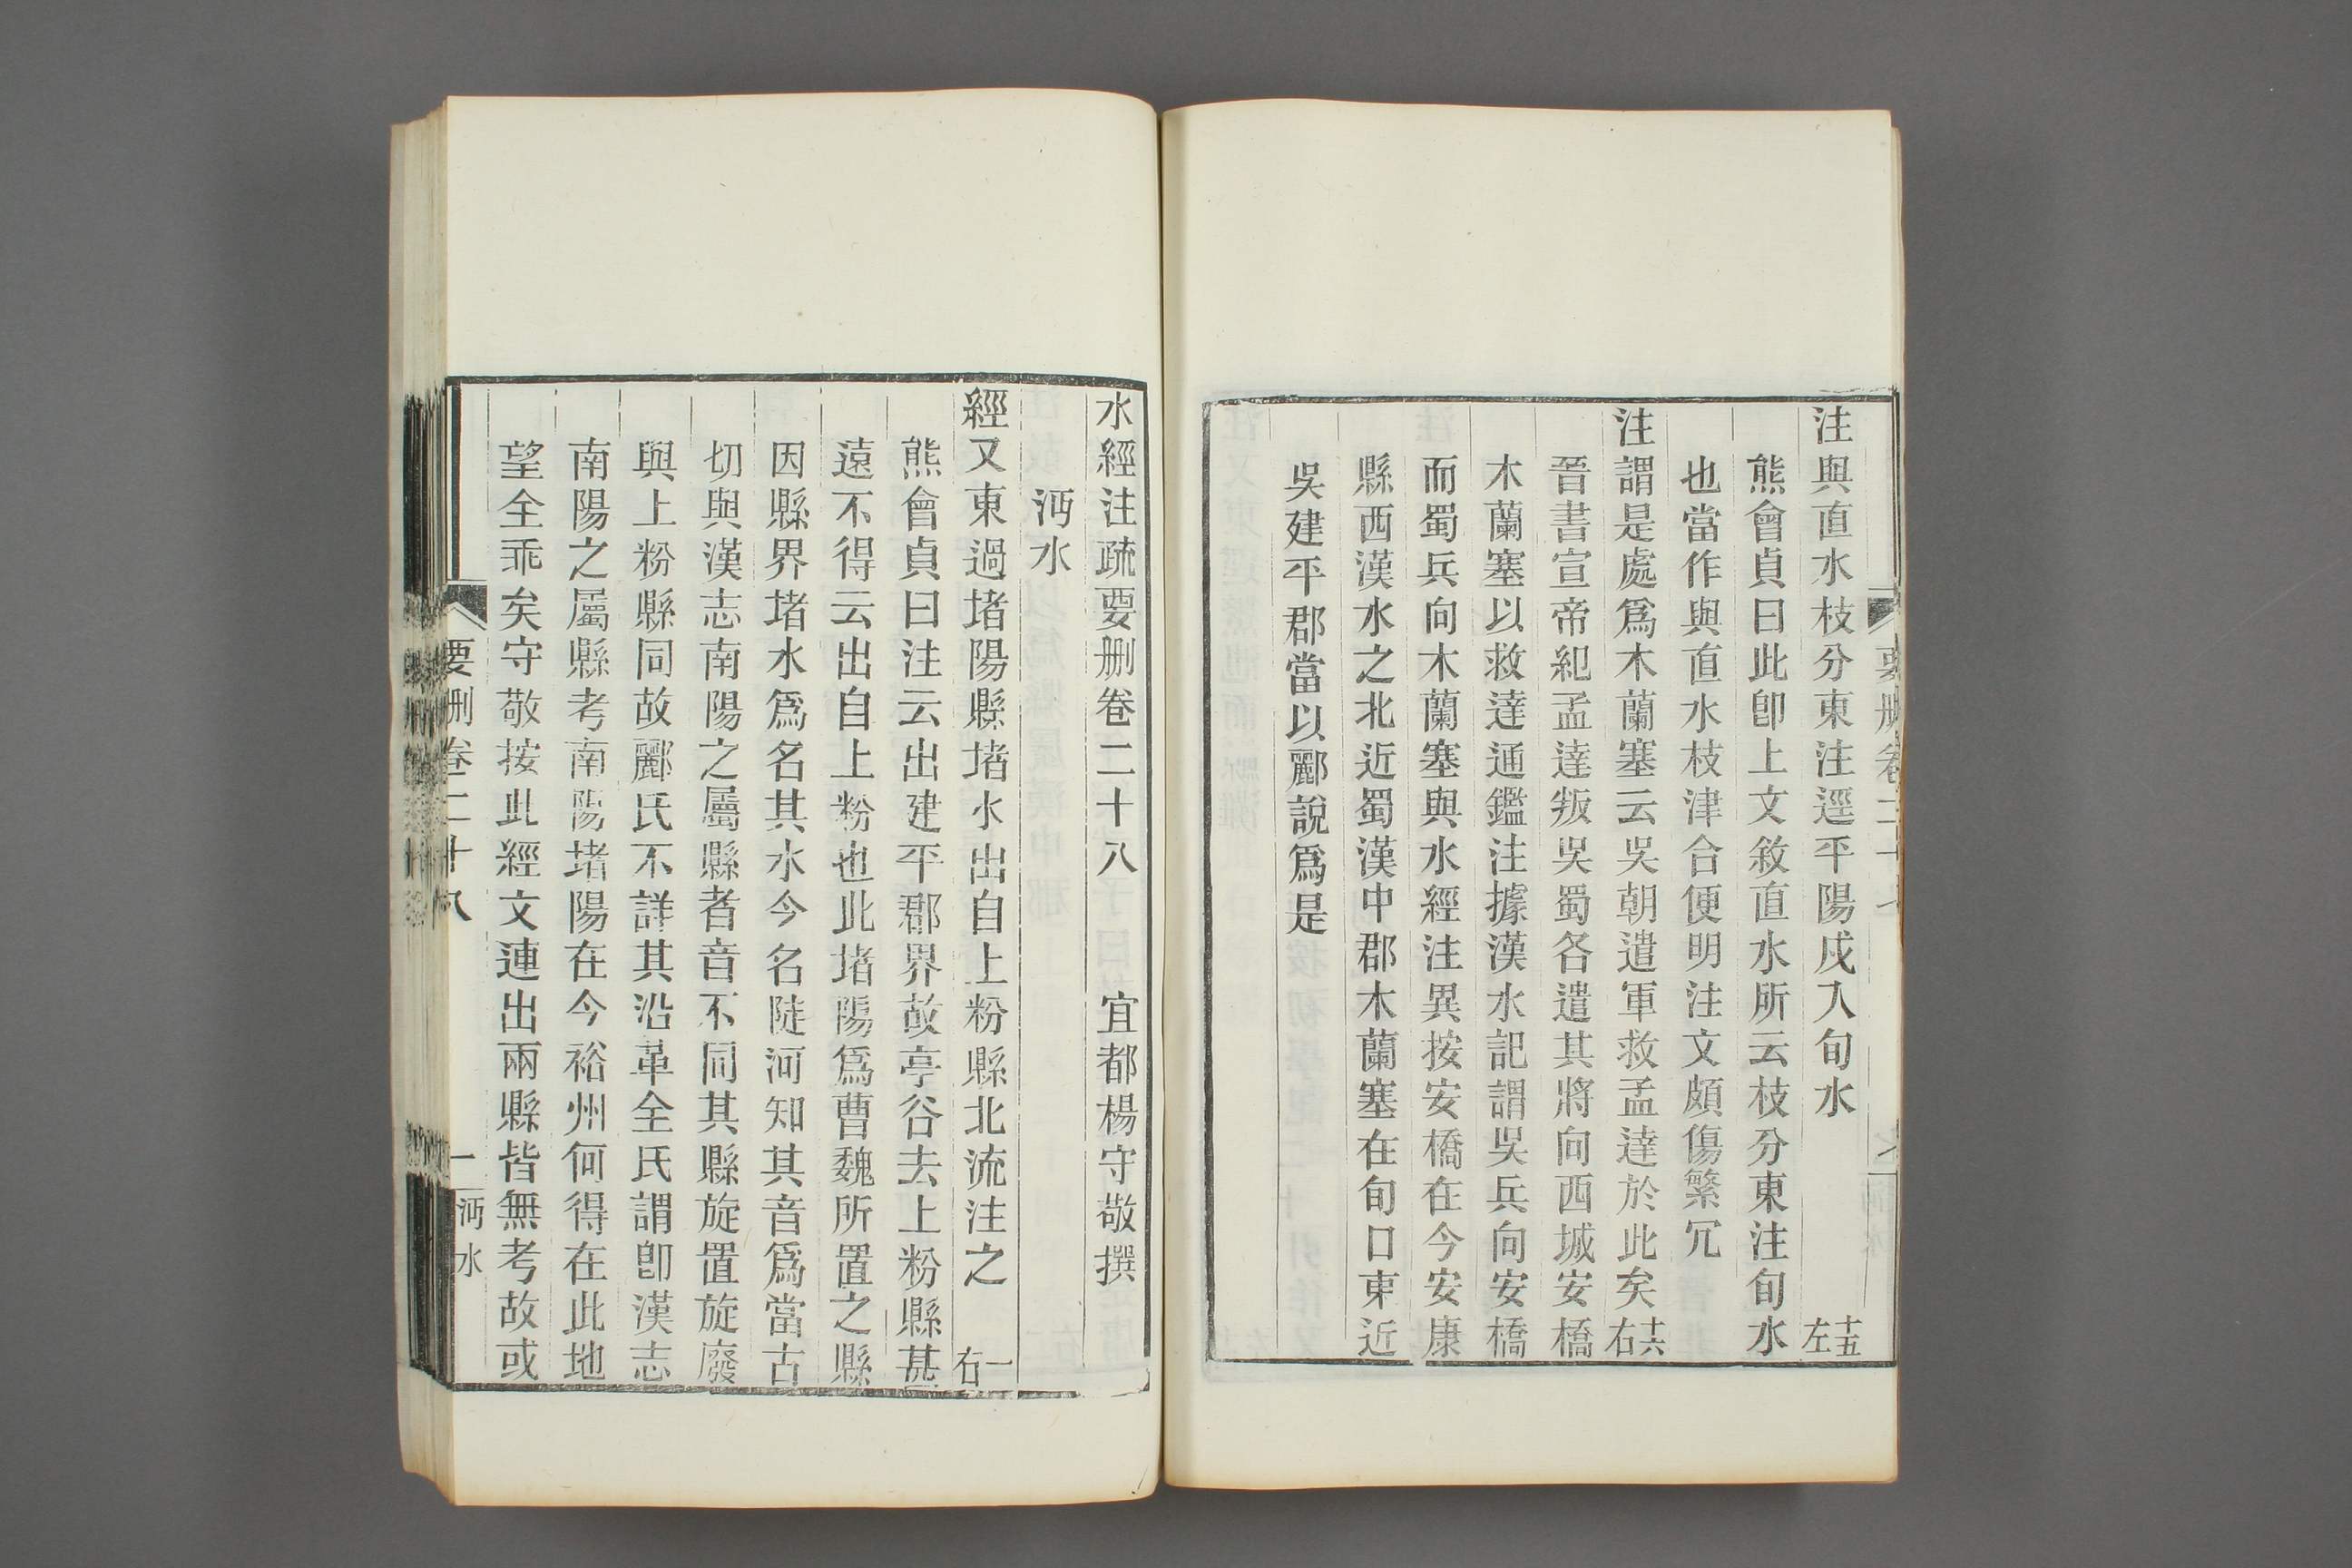 注與直水枝分東注逕平陽戍入旬水 十五左
熊會貞曰此卽上文敘直水所云枝分東注旬水
也當作與直水枝津合便明注文頗傷繁冗
注謂是處爲木蘭塞云吳朝遣軍救孟達於此矣 十六右
晉書宣帝紀孟達叛吳蜀各遣其將向西城安橋
木蘭塞以救達通鑑注據漢水記謂吳兵向安橋
而蜀兵向木蘭塞與水經注異按安橋在今安康
縣西漢水之北近蜀漢中郡木蘭塞在旬口東近
吳建平郡當以酈說爲是
水經注疏要刪卷二十八 宜都楊守敬撰
沔水
經又東過堵陽縣堵水出自上粉縣北流注之 一右
熊會貞曰注云出建平郡界故亭谷去上粉縣甚
遠不得云出自上粉也此堵陽爲曹魏所置之縣
因縣界堵水爲名其水今名陡河知其音爲當古
切與漢志南陽之屬縣者音不同其縣旋置旋廢
與上粉縣同故酈氏不詳其沿革全氏謂卽漢志
南陽之屬縣考南陽堵陽在今裕州何得在此地
望全乖矣守敬按此經文連出兩縣皆無考故或
要刪卷二十八 一 沔水